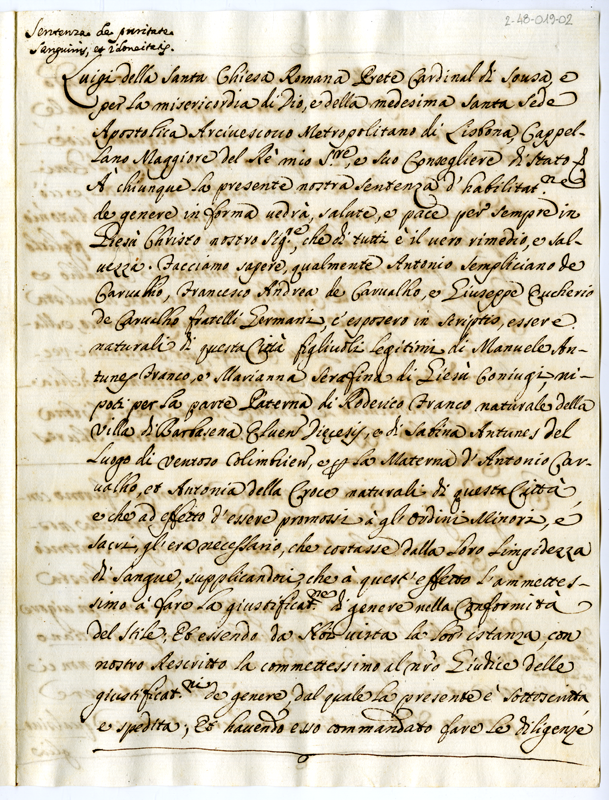 2-48-019-02
Sentenza de puritate
Sanguinis, et idoneitatis.
Luigi della Santa Chiesa Romana Prete Cardinal di Sousa, e
per la misericordia di Dio, e della medesima Santa Sede
Apostolica Arcivescovo Metropolitano di Lisbona, Cappel-
lano Maggiore del Rè mio Sre, e suo Consegliere di Stato
A' chiunque la presente nostra sentenza d'habilitatne
de genere in forma vedrà, salute, e pace per sempre in
Giesù Christo nostro Sigre, che di tutti è il vero rimedio, e sal-
uezza. Facciamo sapere, qualmente Antonio Sempliciano de
Carvalho, Francesco Andrea de Carvalho, e Giuseppe Eucherio
de Carvalho fratelli Germani, c'esposero in scriptis, essere
naturali di questa Città figliuoli legitimi di Manuele An-
tunes Franco, e Marianna Serafina di Giesù Coniugi, ni-
poti per la parte Paterna di Roderico Franco naturale della
Villa di Barbasena Eluen Diecesis, e di Sabina Antunes del
Luogo di Ventoso Colimbrien, e p la Materna d'Antonio Car-
valho, et Antonia della Croce naturali di questa Città
e che ad effetto d'essere promossi à gli Ordini Minori, e
sacri, gli era necessario, che costasse dalla loro limpidezza
di sangue, supplicandoci, che à quest'effetto l'ammettes-
simo a' fare la giustificatne di genere nella Conformità
del stile; Et essendo da Noi vista la lor istanza, con
nostro Rescritto la commettessimo al nro Giudice delle
giustificatni de genere, dal quale la presente è sottoscritta
e spedita; Et havendo esso commandato fare le diligenze